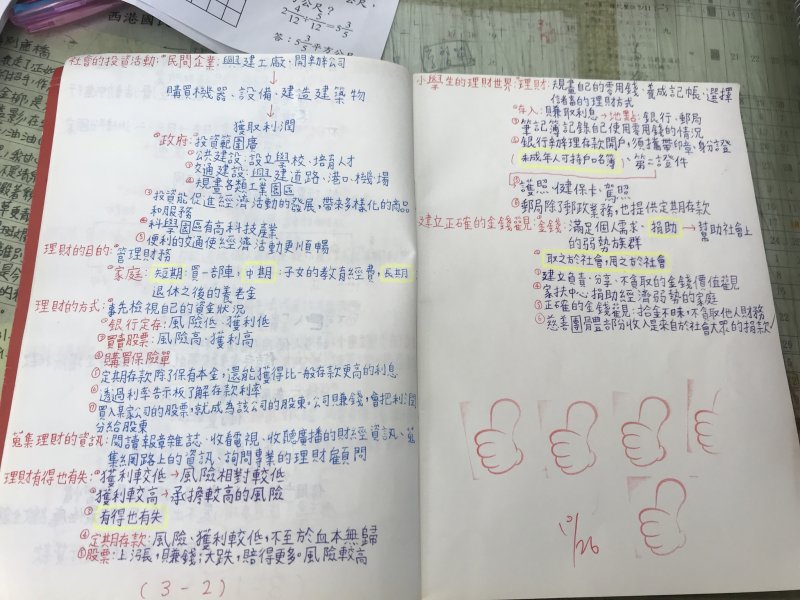 西港國
平方公尺
答：5 3/5 平方公尺
社會的投資活動：①民間企業：興建工廠、開辦公司
↓
購買機器、設備、建造建築物
↓
獲取利潤
②政府：投資範圍廣
①公共建設：設立學校、培育人才
②交通建設：興建道路、港口、機場
④規畫各類工業園區
③投資能促進經濟活動的發展，帶來多樣化的商品
和服務
④科學園區有高科技產業
⑤便利的交通使經濟活動更順暢
理財的目的：①管理財務
②家庭：短期：買一部車，中期：子女的教育經費，長期
退休之後的養老金
理財的方式：①事先檢視自己的資金狀況
②銀行定存：風險低、獲利低
③買賣股票：風險高、獲利高
④購買保險單
⑤定期存款除了保有本金，還能獲得比一般存款更高的利息
⑥透過利率告示板了解存款利率
⑦買入某家公司的股票，就成為該公司的股東。公司賺錢，會把利潤
分給股東
蒐集理財的資訊：閱讀報章雜誌、收看電視、收聽廣播的財經資訊、蒐
集網路上的資訊、詢問專業的理財顧問
理財有得也有失：①獲利較低→風險相對較低
②獲利較高→承擔較高的風險
③有得也有失
④定期存款：風險、獲利較低，不至於血本無歸
⑤股票：上漲，賺錢；大跌，賠得更多。風險較高
(3-2)
小學生的理財世界：①理財：規畫自己的零用錢、養成記帳、選擇
儲蓄的理財方式
②存入：賺取利息→地點：銀行、郵局
③筆記簿記錄自己使用零用錢的情況
④銀行辦理存款開戶，須攜帶印章、身分證
(未成年人可持戶口名簿)、第二證件
↓
護照、健保卡、駕照
⑤郵局除了郵政業務，也提供定期存款
建立正確的金錢觀：①金錢：滿足個人需求、捐助→幫助社會上
的弱勢族群
②取之於社會，用之於社會
③建立負責、分享、不貪取的金錢價值觀
④家扶中心：捐助經濟弱勢的家庭
⑤正確的金錢觀：拾金不昧，不貪取他人財務
⑥慈善團體部分收入是來自於社會大眾的捐款
12/26